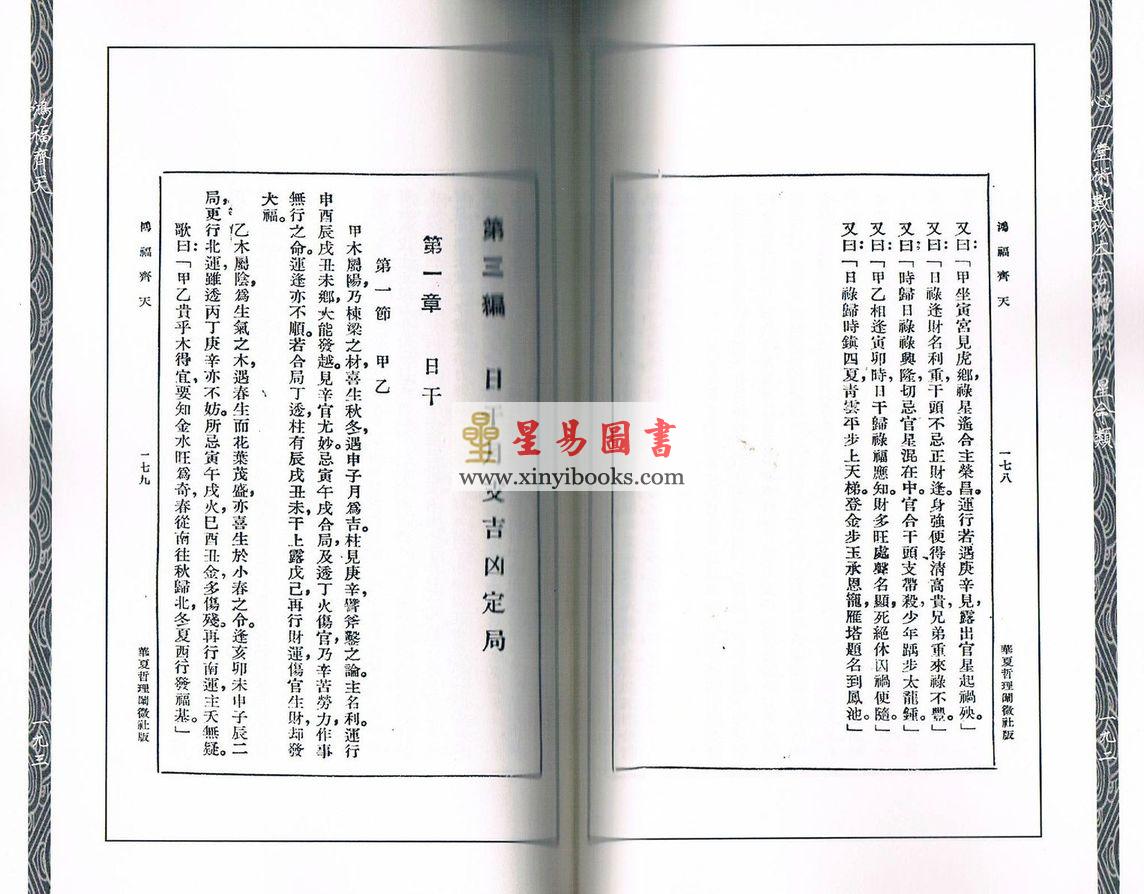 心一堂術數珍本古籍叢刊 星命類
一九二
鴻福齊天
一七八
華夏哲理闡微社版
又曰：「甲坐寅宮見虎鄉，祿星遙合主榮昌。運行若遇庚辛見，露出官星起禍殃。」
又曰：「日祿逢財名利重，干頭不忌正財逢。身強便得清高貴，兄弟重來祿不豐。」
又曰：「時歸日祿祿興隆，切忌官星混在中。官合干頭支帶殺，少年踽步太龍鍾。」
又曰：「甲乙相逢寅卯時，日干歸祿福應知。財多旺處聲名顯，死絕休囚禍便隨。」
又曰：「日祿歸時鎮四夏，青雲平步上天梯。登金步玉承恩寵，雁塔題名到鳳池。」
第三編 日 吉凶定局
第一章 日干
第一節 甲乙
甲木屬陽，乃棟梁之材，喜生秋冬，遇申子月爲吉。柱見庚辛，譬斧鑿之論。主名利。運行
申酉辰戌丑未鄉，大能發越。見辛官尤妙。忌寅午戌合局，及透丁火傷官，乃辛苦勞力，作事
無行之命。運逢亦不順。若合局丁透，柱有辰戌丑未，干上露戊己，再行財運，傷官生財，却發
大福。
乙木屬陰，爲生氣之木，遇春生而花葉茂盛，亦喜生於小春之令。逢亥卯未申子辰二
局，更行北運，雖透丙丁庚辛亦不妨。所忌寅午戌火，巳酉丑金，多傷殘。再行南運，主夭無疑。
歌曰：「甲乙貴乎木得宜，要知金水旺爲奇，春從南往秋歸北，冬夏西行發福基。」
鴻福齊天
一七九
華夏哲理闡微社版
鴻福齊天
一九三
星易圖書
www.xinyibooks.com